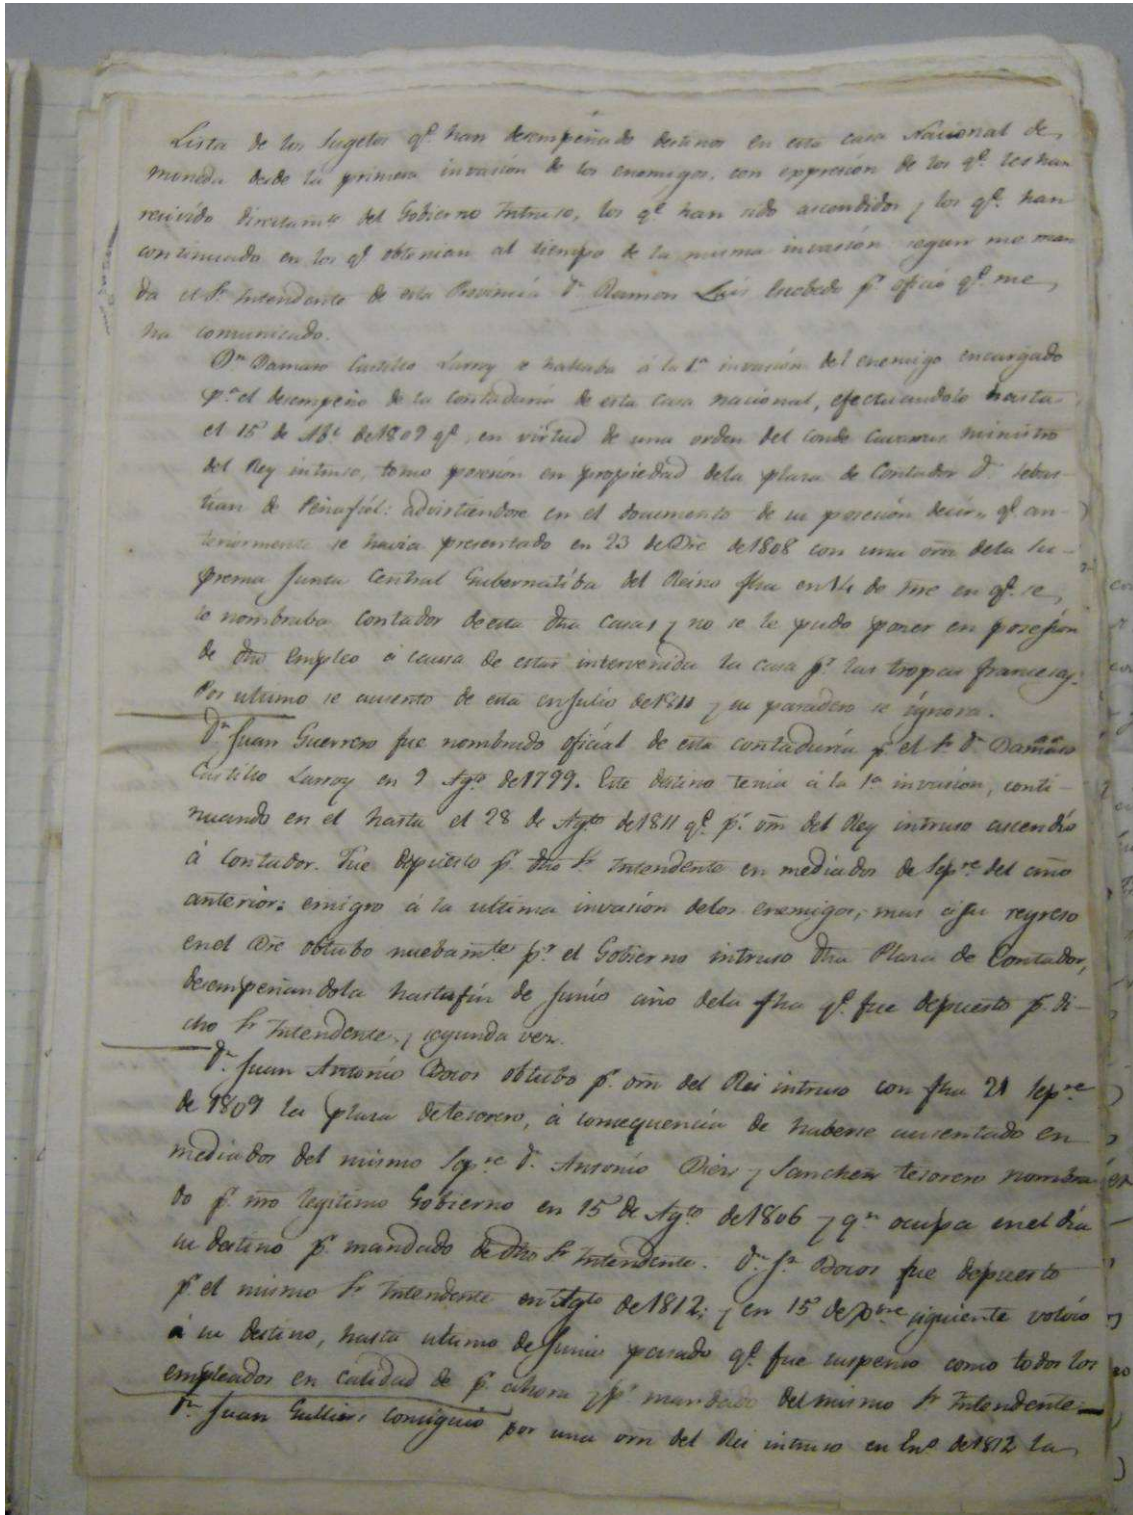 Lista de los Sugetos qe. han desempeñado destinos en esta casa Nacional de
moneda desde la primera invasión de los enemigos, con expresión de los qe. les han
recivido directamte. del Gobierno Intruso, los qe. han sido ascendidos y los qe. han
continuado en los qe. obtenian al tiempo de la misma invasión segun me man
da el Sr. Intendente de esta Provincia Dn. Ramon Luis Escobedo pr. oficio qe. me
ha comunicado.
Dn. Damaso Castillo Larroy se hallaba á la 1a. invasión del enemigo encargado
pa. el desempeño de la contaduría de esta casa nacional, efectuandolo hasta
el 15 de Abl. de 1809 qe. en virtud de una orden del conde Cavarrus ministro
del Rey intruso, tomo posesión en propiedad dela plaza de Contador Dn. Sebas-
tian de Peñafiél: advirtiendose en el documento de su posesión decir, qe. an-
teriormente se havia presentado en 23 de Dre. de 1808 con una orn. dela Su-
prema Junta Central Gubernatiba del Reino fha en 14 de nre en qe. se
le nombraba contador de esta dha casa, y no se le pudo poner en posesión
de dho Empleo á causa de estar intervenida la casa pr. las tropas francesas.
Por ultimo se ausento de esta en Julio de 1811 y su paradero se ignora.
Dn. Juan Guerrero fue nombrado oficial de esta contaduría pr. el Sr. Dn. Damaso
Castillo Larroy en 9 Agto. de 1799. Este destino tenia á la 1a. invasión, conti-
nuando en el hasta el 28 de Agto de 1811 qe. pr. orn. del Rey intruso ascendio
á contador. Fue depuesto pr. dho Sr. Intendente en mediados de Sepre. del año
anterior: emigro á la ultima invasión delos enemigos, mas á su regreso
en el Dre. obtubo nuebamte. pr. el Gobierno intruso dha Plaza de Contador,
desempeñandola hasta fin de Junio año dela fha qe. fue depuesto pr. di-
cho Sr. Intendente, y segunda vez.
Dn. Juan Antonio Bocos obtubo pr. orn. del Rei intruso con fha 21 Sepre.
de 1809 la plaza de tesorero, á consequencia de haberse ausentado en
mediados del mismo Sepre. Dn. Antonio Diez y Sanchez tesorero nombra
do pr. nro legitimo Gobierno en 15 de Agto. de 1806 y qn. ocupa en el día
su destino pr. mandado de dho Sr. Intendente. Dn. Jn. Bocos fue depuesto
pr. el mismo Sr. Intendente en Agto de 1812; y en 15 de siguiente volvió
á su destino, hasta ultimo de Junio pasado qe. fue suspenso como todos los
empleados en calidad de pr. ahora y pr. mandado del mismo Sr. Intendente.
Dn. Juan consiguió por una orn del Rei intruso en Eno. de 1812 la